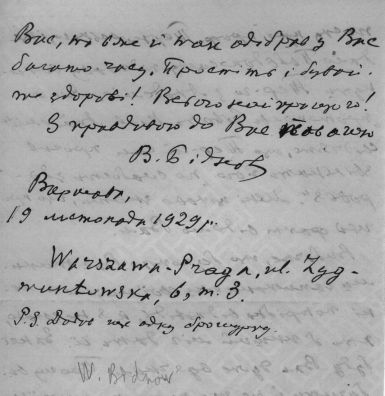 Вас, то вже й так одібрав у Вас
багато часу. Простіть і бувай-
те здорові! Всього найкращого!
З правдивою до Вас повагою
В. Біднов
Варшава,
19 листопада 1929 р.
Warszawa-Praga, ul. Zyg-
muntowska, 6, m. 3.
P.S. Додаю ще одну брошурку.
W. Bidnow